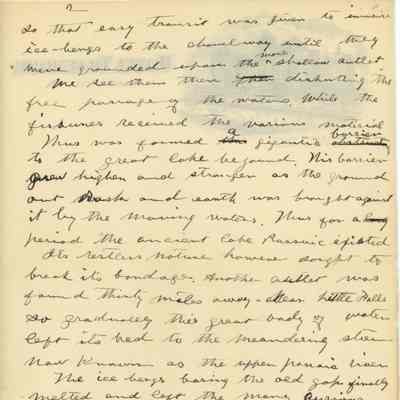 2
so that easy transit was given to immense
ice-bergs to the channel way until they
were grounded upon the more shallow outlet
We see them then disputing the
free passage of the waters. While the
fishures received the various material
Thus was formed a gigantic barrier
to the great lake beyound. This barrier
grew higher and stronger as the ground
out rocks and earth was brought against
it by the moving waters. Thus for a long
period the ancient lake Passaic existed
Its restless nature however sought to
break its bondage. Another outlet was
found thirty miles away - near Little Falls
so gradually this great body of water
left its bed to the meandering stream
now known as the upper passaic river
The ice bergs baring the old gap finally
melted and left the many